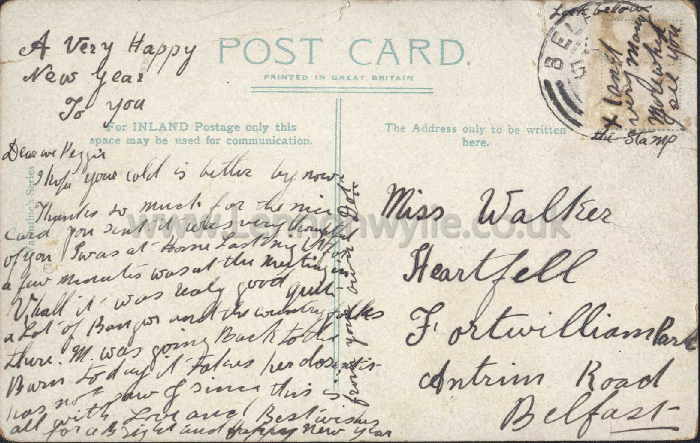 A Very Happy
New Year
To You
POST CARD.
PRINTED IN GREAT BRITAIN
For INLAND Postage only this
space may be used for communication.
The Address only to be written
here.
Valentine's Series
Look below
the Stamp
BEL
Dear wee Peggie
I hope your cold is better by now
Thanks so much for the nice
card you sent it was very
of you I was at Home last
a few minutes was at the meeting
it was realy good quite
a Lot of Bangor and the country folks
there. M. was going Back to the
Barn to day it takes her
has not since this is
all with Love and Best wishes
for a Bright and happy New year
from your
Miss Walker
Heartfell
Fortwilliam Park
Antrim Road
Belfast
www.Lennonwylie.co.uk